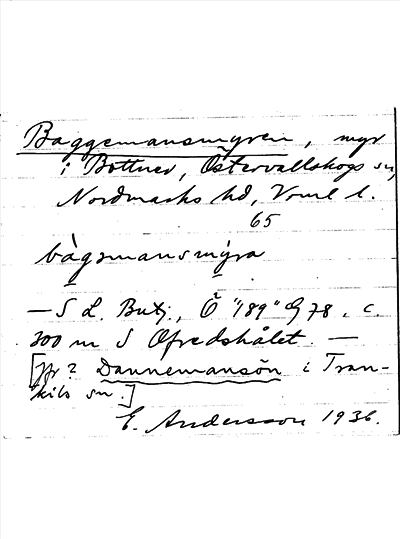 Baggemansmyren, myr
i Bottnev, Östervallskogs sn,
Nordmarks hd, Vrml l.
65
bàgəmansmýra
— S L. Butj., Ö "189" 78. c.
300 m S Öfredshålet. —
[Jfr? Dannemansön i Tran-
kils sn.]
E. Andersson 1936.